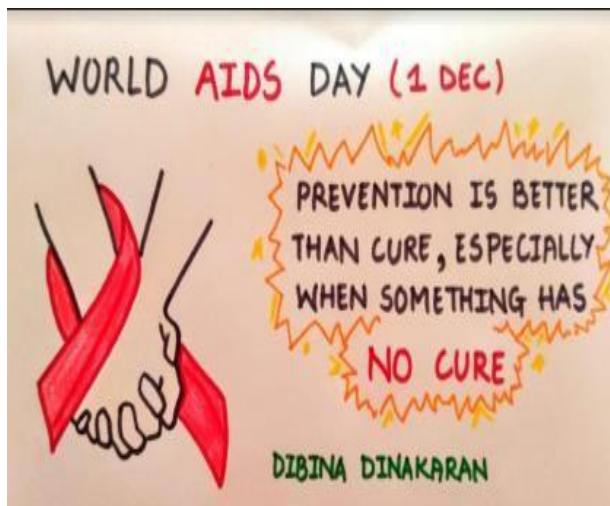 WORLD AIDS DAY (1 DEC)
PREVENTION IS BETTER
THAN CURE, ESPECIALLY
WHEN SOMETHING HAS
NO CURE
DIBINA DINAKARAN